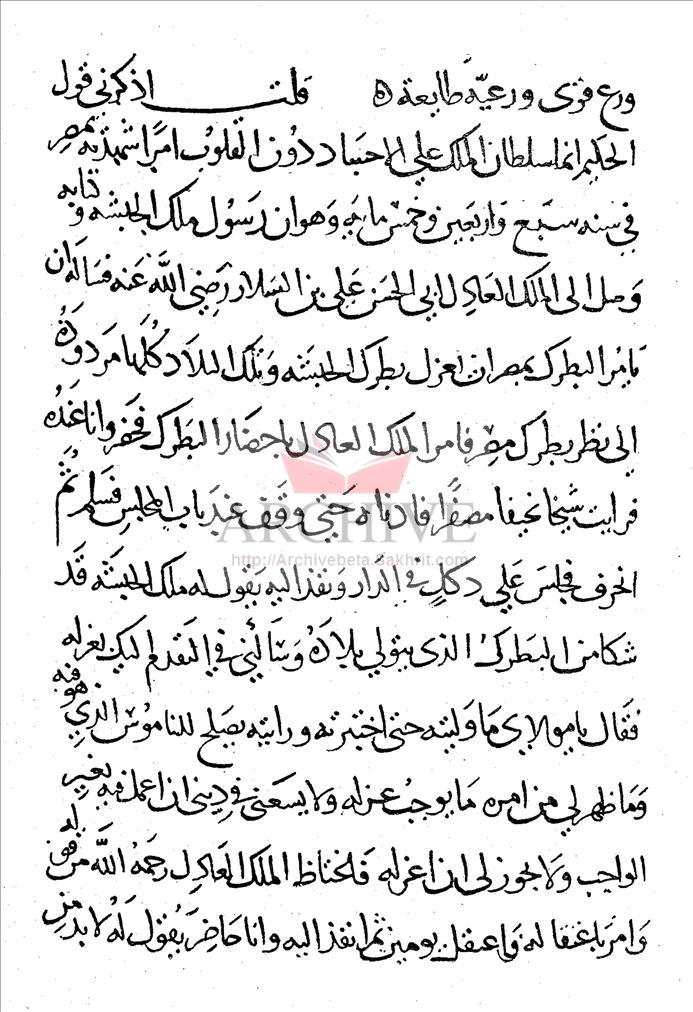 ورع قوى ورعيه طايعة ه قلت اذكرنى قول
الحكيم انما سلطان الملك على الاجساد دون القلوب امرا شهدته بمصر
فى سنه سبع واربعين وخمس مايه وهو ان رسول ملك الحبشه وكتابه
وصل الى الملك العادل ابى الحسن على بن السلار رضى الله عنه فساله ان
يامر البطرك بمصر ان يعزل بطرك الحبشه وتلك البلاد كلها مردودة
الى نظر بطرك مصر فامر الملك العادل باحضار البطرك فحضر وانا عنده
فرايت شيخا نحيفا مصفرا فادناه حتى وقف عند باب المجلس فسلم ثم
انحرف فجلس على دكل فى الدار ونفذ اليه يقول له ملك الحبشه قد
شكا من البطرك الذى يتولى بلاده وسالنى فى التقدم اليك بعزله
فقال يا مولاى ما وليته حتى اختبرته ورايته يصلح للناموس الذى هو فيه
وما ظهر لى من امره ما يوجب عزله ولا يسعنى فى دينى ان اعمل فيه بغير
الواجب ولا يجوز لى ان اعزله فاغتاظ الملك العادل رحمه الله من قوله
وامر باعتقاله فاعتقل يومين ثم انفذ اليه وانا حاضر يقول له لا بد من
ARCHIVE
http://Archivebeta.Sakhrit.com